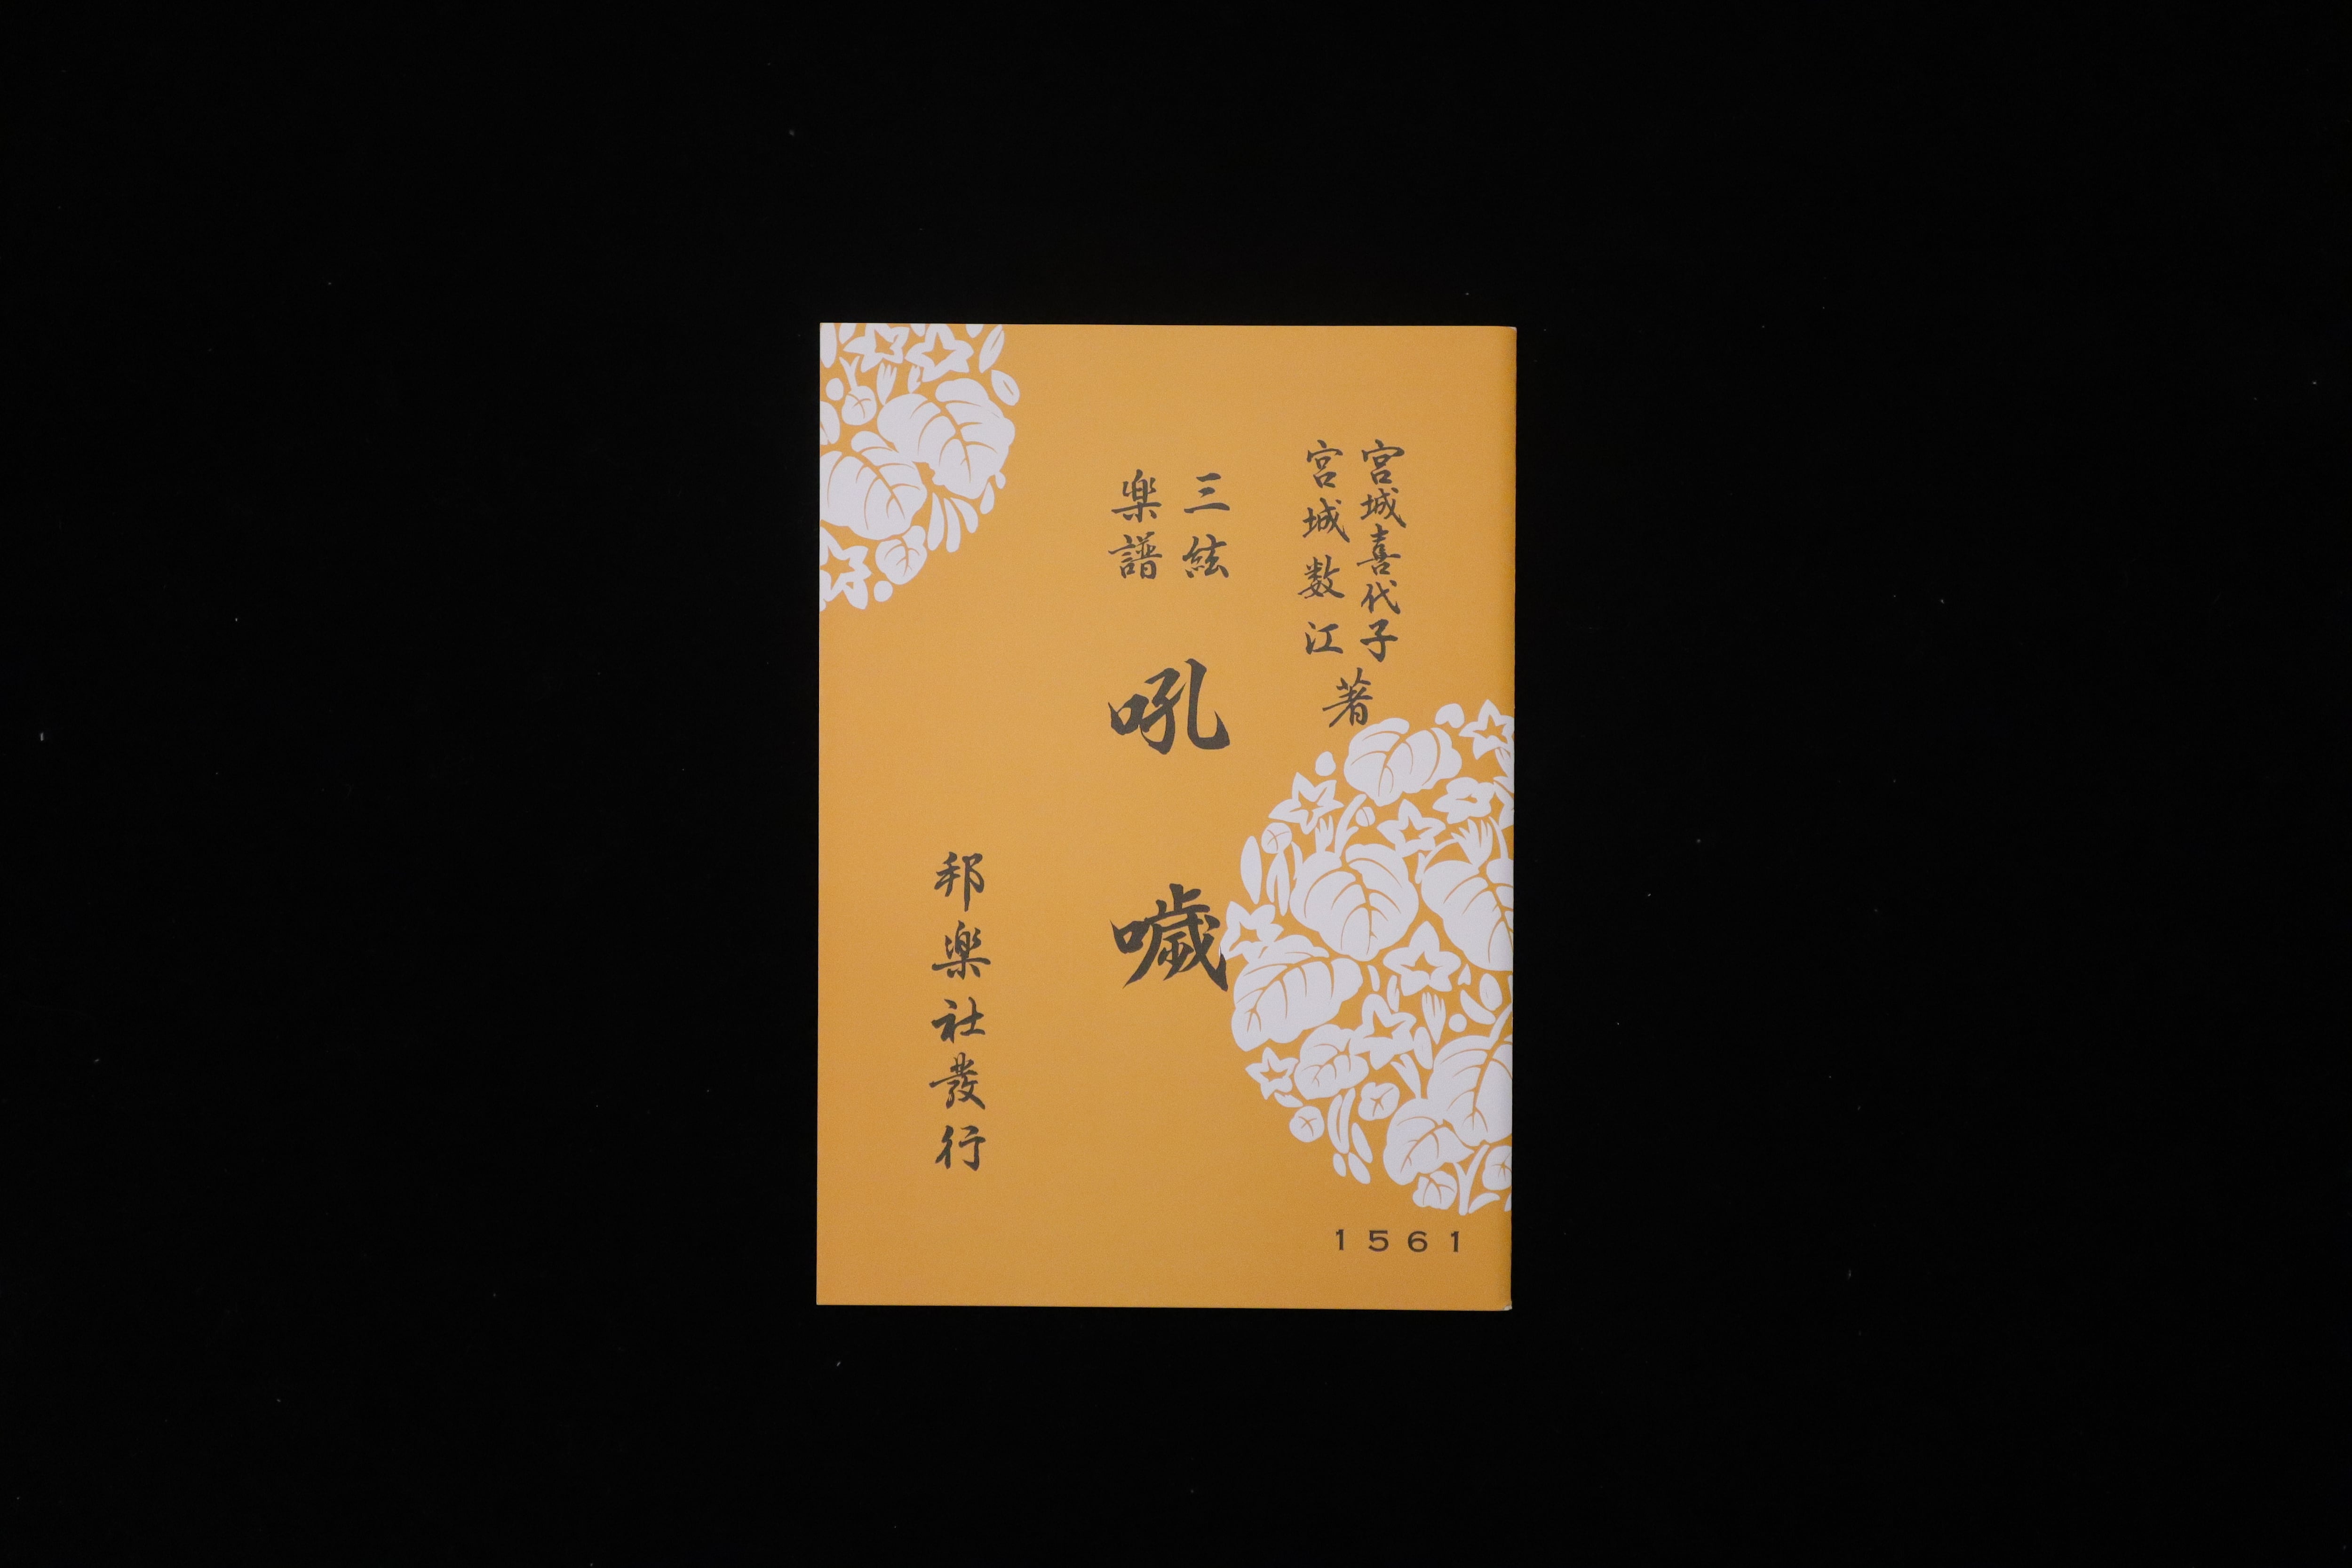 宮城喜代子
宮城数江
著
三絃
楽譜
吼噦
邦楽社發行
1561